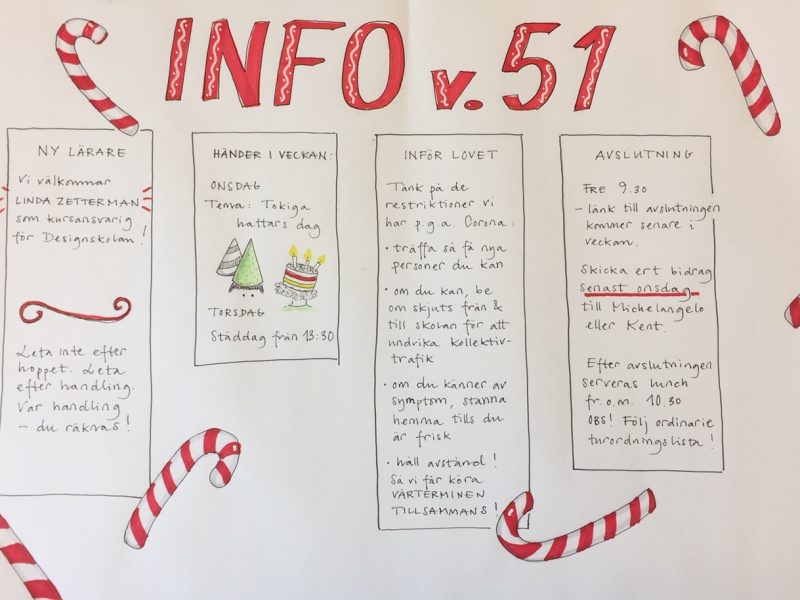 INFO v. 51
NY LÄRARE
Vi välkommar
LINDA ZETTERMAN
som kursansvarig
för Designskolan!
Leta inte efter
hoppet. Leta
efter handling.
Var handling
– du räknas!
HÄNDER I VECKAN:
ONSDAG
Tema: Tokiga
hattars dag
TORSDAG
Städdag från 13:30
INFÖR LOVET
Tänk på de
restriktioner vi
har p.g.a. Corona:
· träffa så få nya
personer du kan
· om du kan, be
om skjuts från &
till skolan för att
undvika kollektiv-
trafik
· om du känner av
symptom, stanna
hemma tills du
är frisk
· håll avstånd!
Så vi får köra
VÅRTERMINEN
TILLSAMMANS!
AVSLUTNING
FRE 9.30
– länk till avslutningen
kommer senare i
veckan.
Skicka ert bidrag
senast onsdag
till Michelangelo
eller Kent.
Efter avslutningen
serveras lunch
fr.o.m. 10.30
OBS! Följ ordinarie
turordningslista!